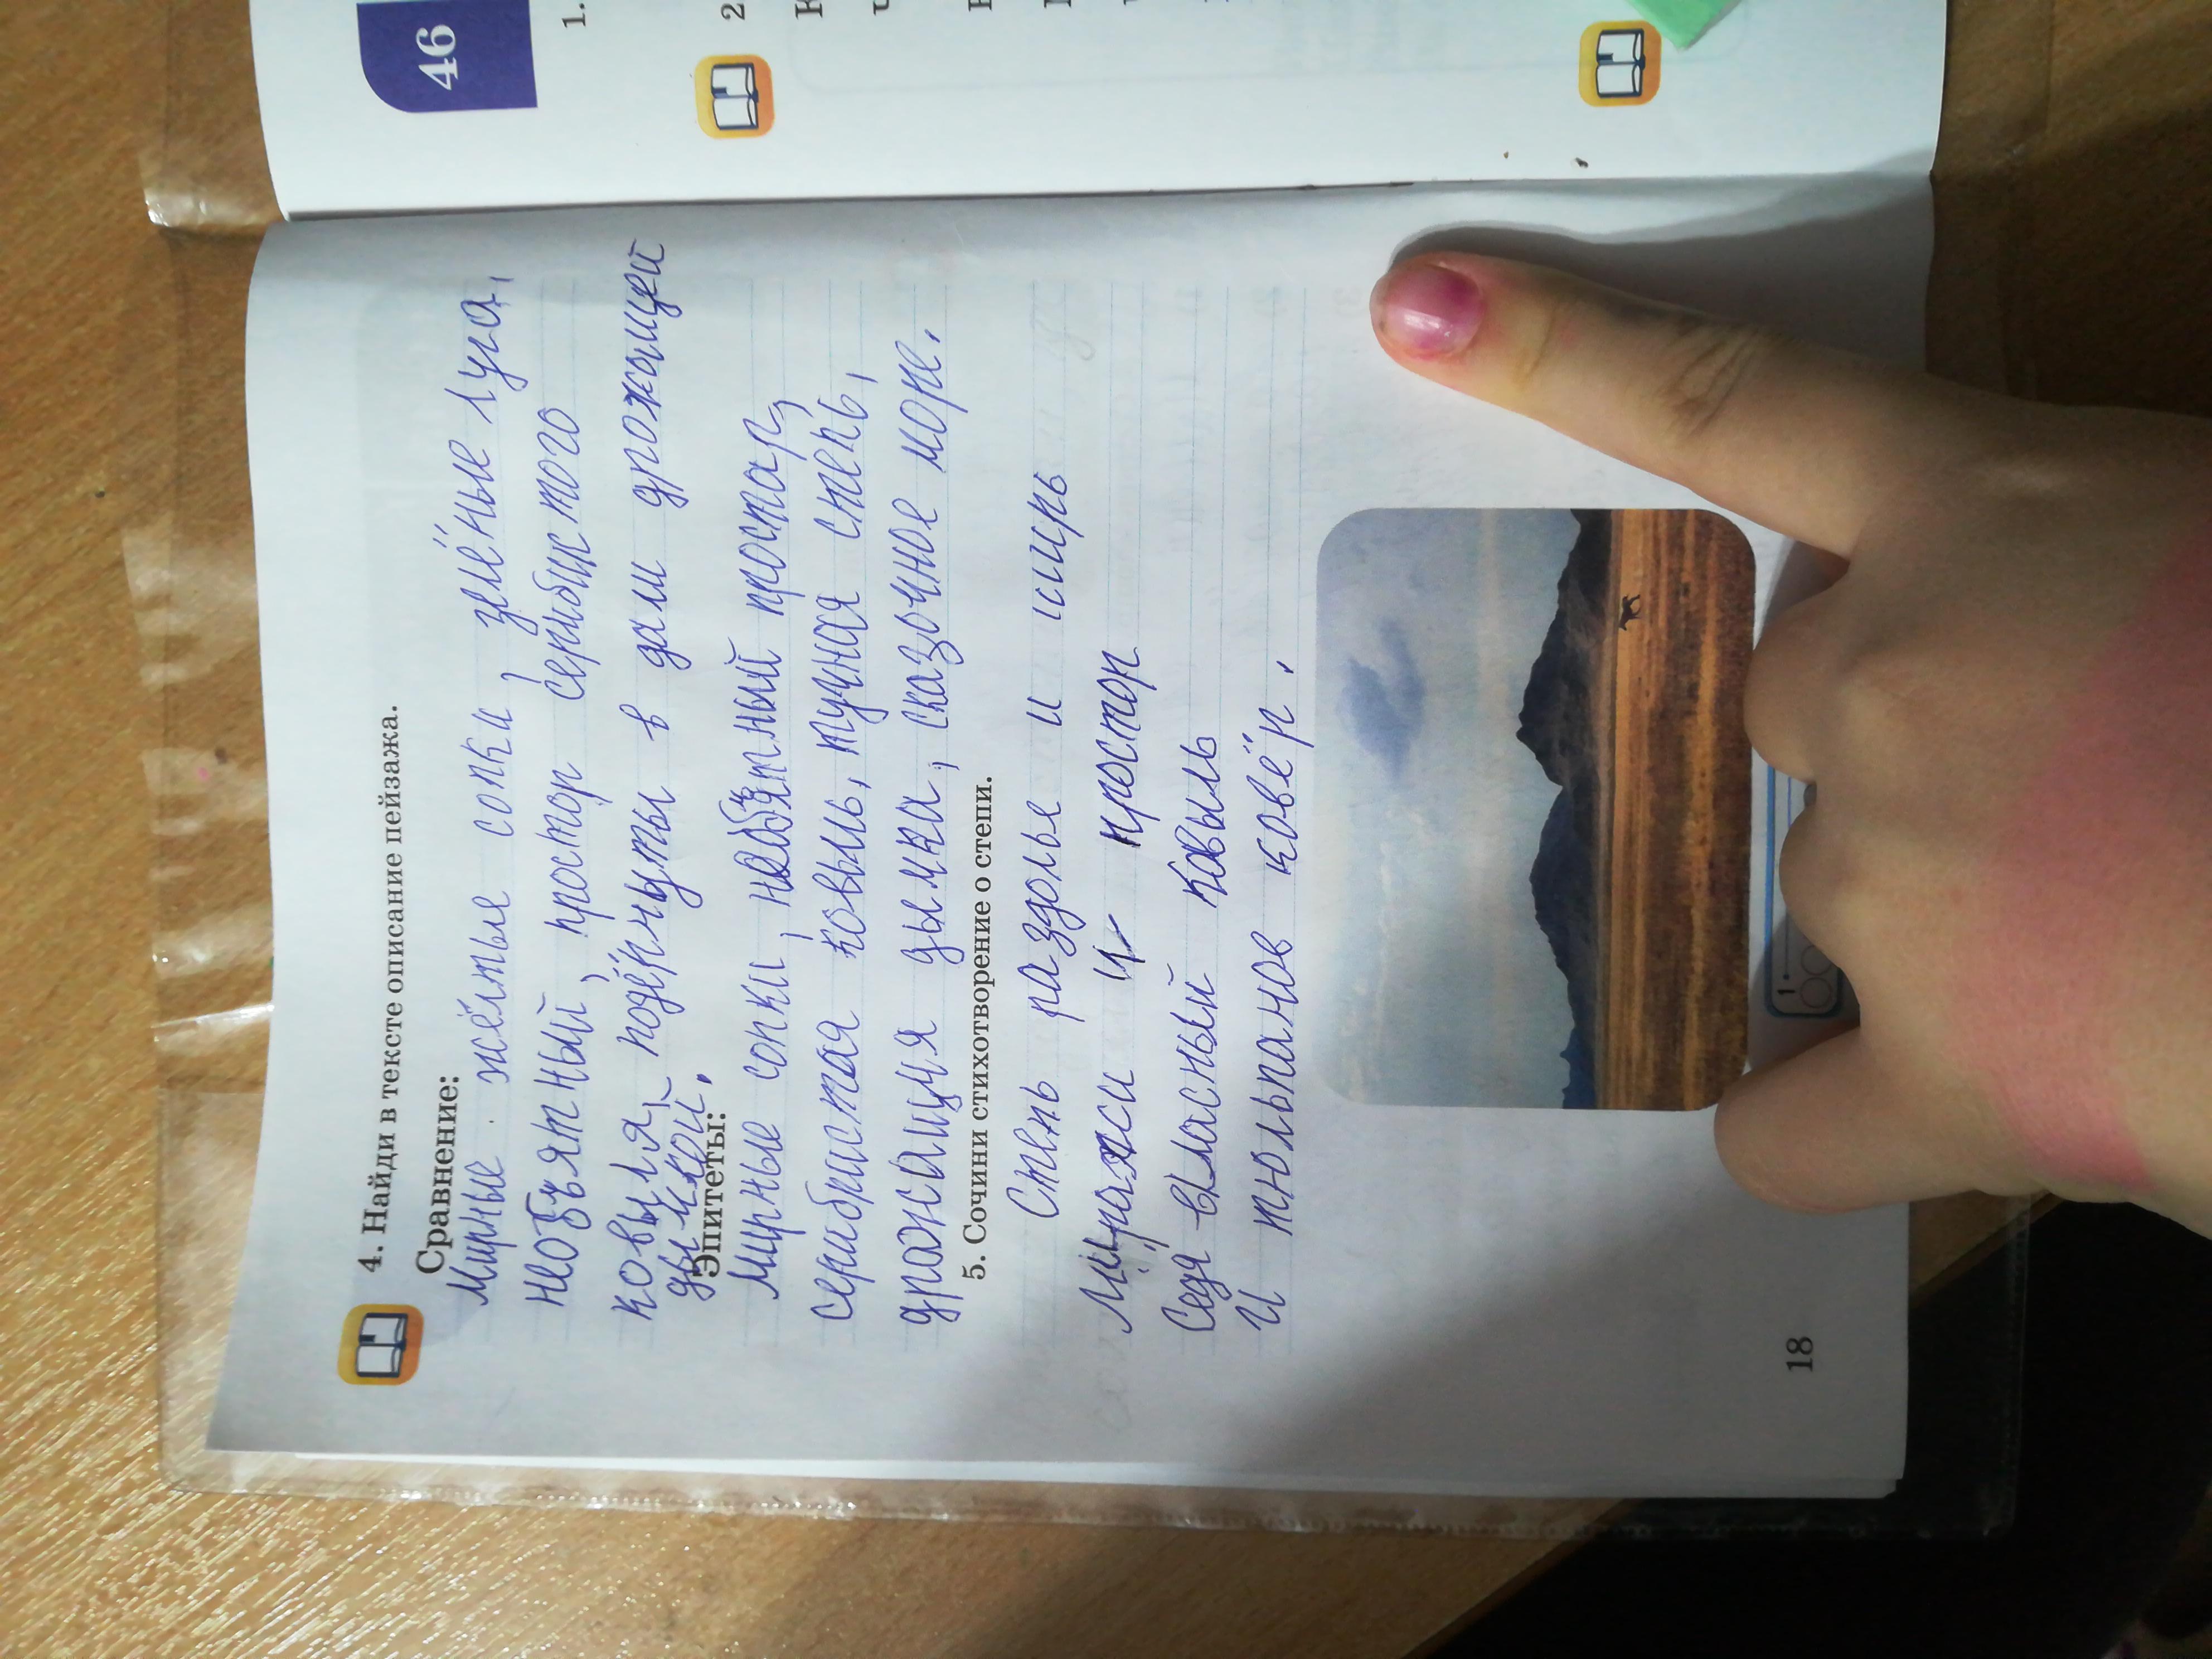 4. Найди в тексте описание пейзажа.
Сравнение:
Мирные жёлтые сопки, зелёные луга,
необъятный, простор серибистого
ковыля, подёрнуты в дали дрожащей
дымкой.
Эпитеты:
Мирные сопки, необъятный простар,
серибристая ковыль, тучная степь,
дрожащия дымка, сказочное море.
5. Сочини стихотворение о степи.
Степь раздолья и ширь
Миражи и простор
Седя власный ковыль
И тюльпанов ковёр.
18
46
1.
2
1